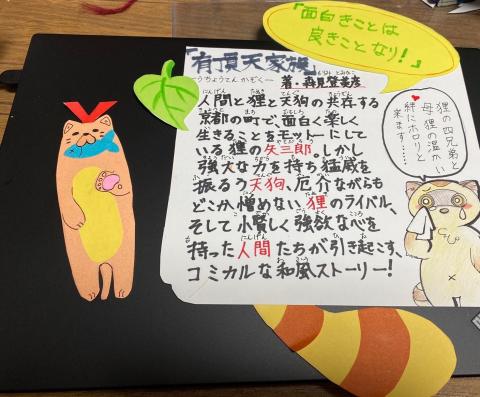 「面白きことは
良きことなり!」
「有頂天家族」
―うちょうてんかぞく―
著・森見登美彦
人間と狸と天狗の共存する
京都の町で、面白く楽しく
生きることをモットーにして
いる狸の矢三郎。しかし
強大な力を持ち猛威を
振るう天狗、厄介ながらも
どこか憎めない狸のライバル、
そして小賢しく強欲な心を
持った人間たちが引き起こす、
コミカルな和風ストーリー!
狸の四兄弟と
母狸の温かい
絆にホロリと
来ます……